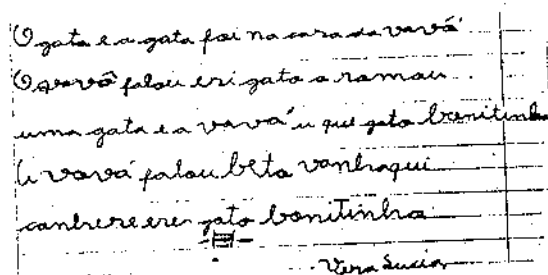 O gato e a gata foi na casa da vavá
O vovô falou esi gato a ramou
uma gata e a vavá u que gato benitinho
u vavá falou beta vanhaqui
canherere esi gato bonitinho
Vera Lucia